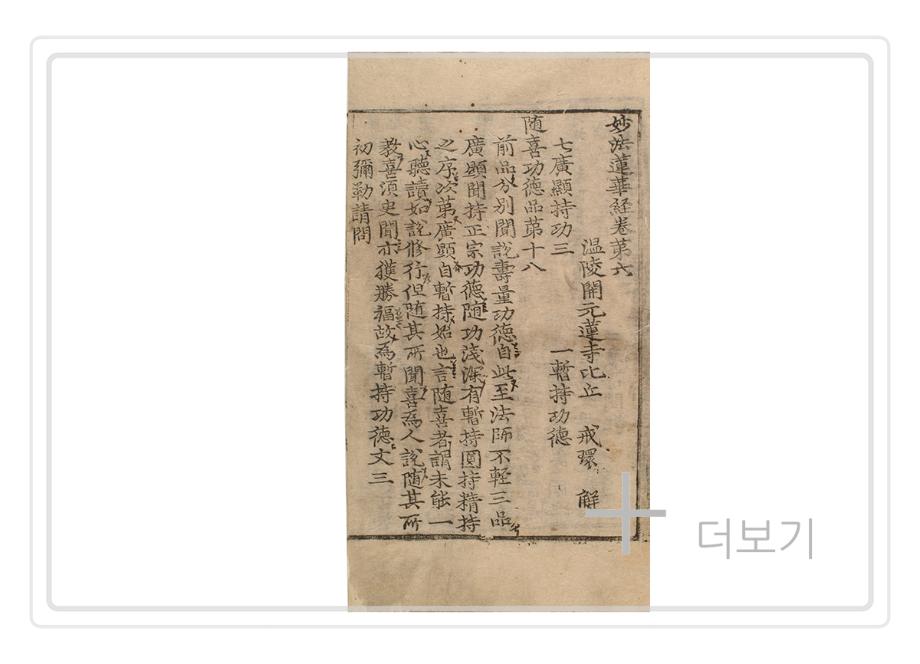 妙法蓮華経卷第六
温陵開元蓮寺比丘 戒環 解
七廣顯持功三 一暫持功德
随喜功德品第十八
前品分别聞說壽量功德自此至法師不輕三品
廣顯聞持正宗功德随功淺深有暫持圓持精持
之序次第廣顯自暫持始也言随喜者謂未能一
心聽讀如說修行但随其所聞喜為人說随其所
教喜須史聞亦獲勝福故為暫持功德文三
初彌勒請問
더보기